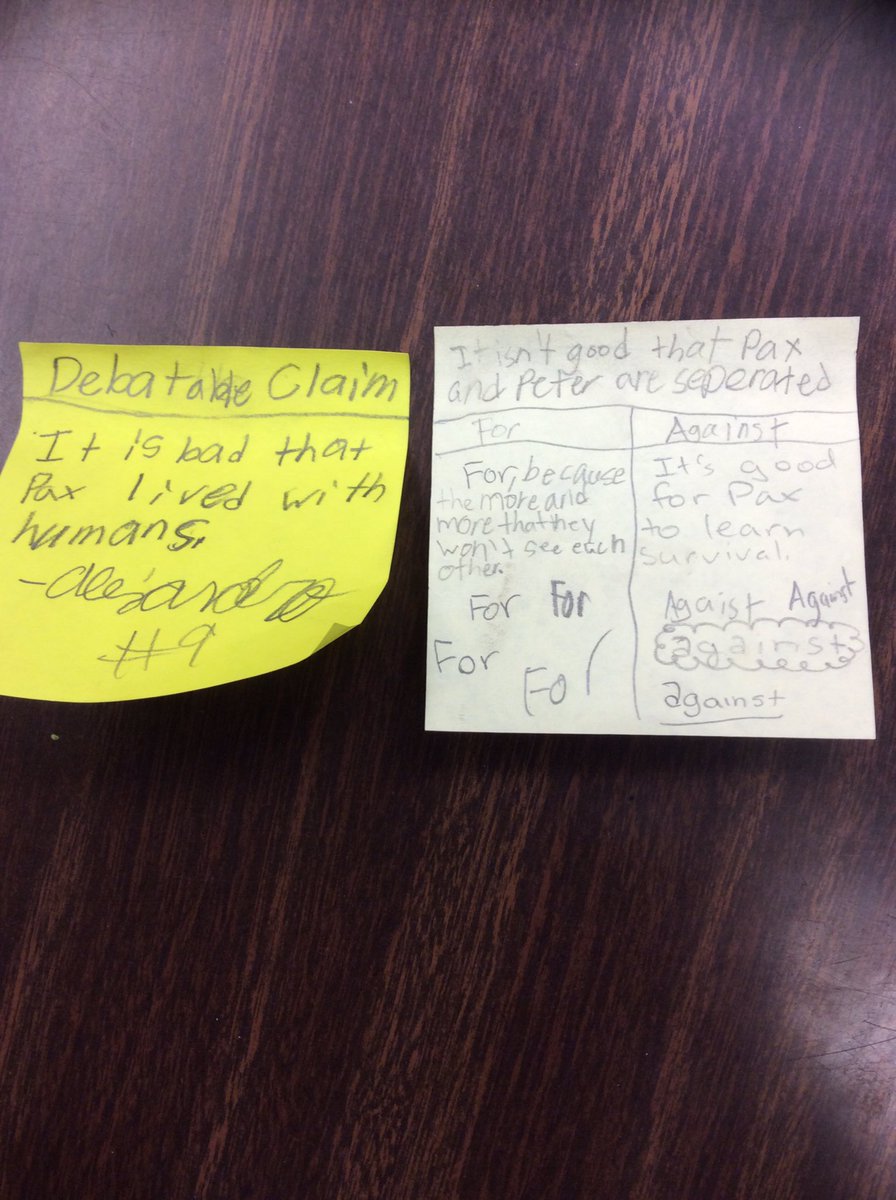 Debatable Claim
It is bad that
Pax lived with
humans.
#9
It isn't good that Pax
and Peter are seperated
For
For, because
the more and
more that they
won't see each
other.
For For
For
For
Against
It's good
for Pax
to learn
survival.
Agaist Against
against
against